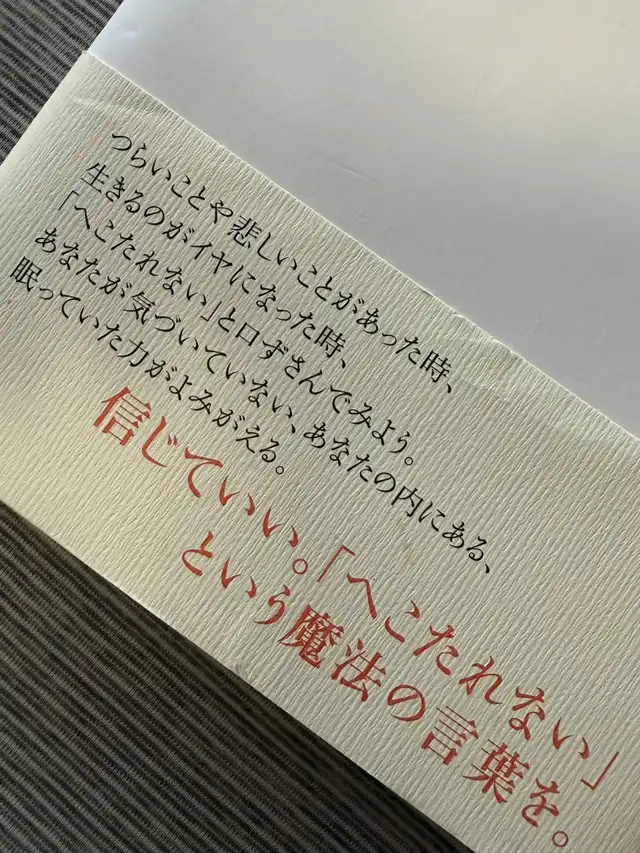 つらいことや悲しいことがあった時、
生きるのがイヤになった時、
「へこたれない」と口ずさんでみよう。
あなたが気づいていない、あなたの内にある、
眠っていた力がよみがえる。
信じていい。「へこたれない」
という魔法の言葉を。